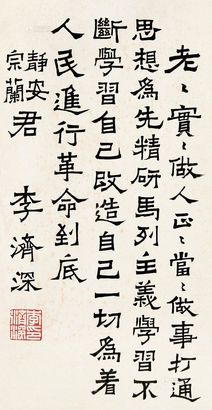 老〻實〻做人正〻當〻做事打通
思想為先精研馬列主義學習不
斷學習自己改造自己一切為着
人民進行革命到底
靜安
宗蘭
君 李濟深